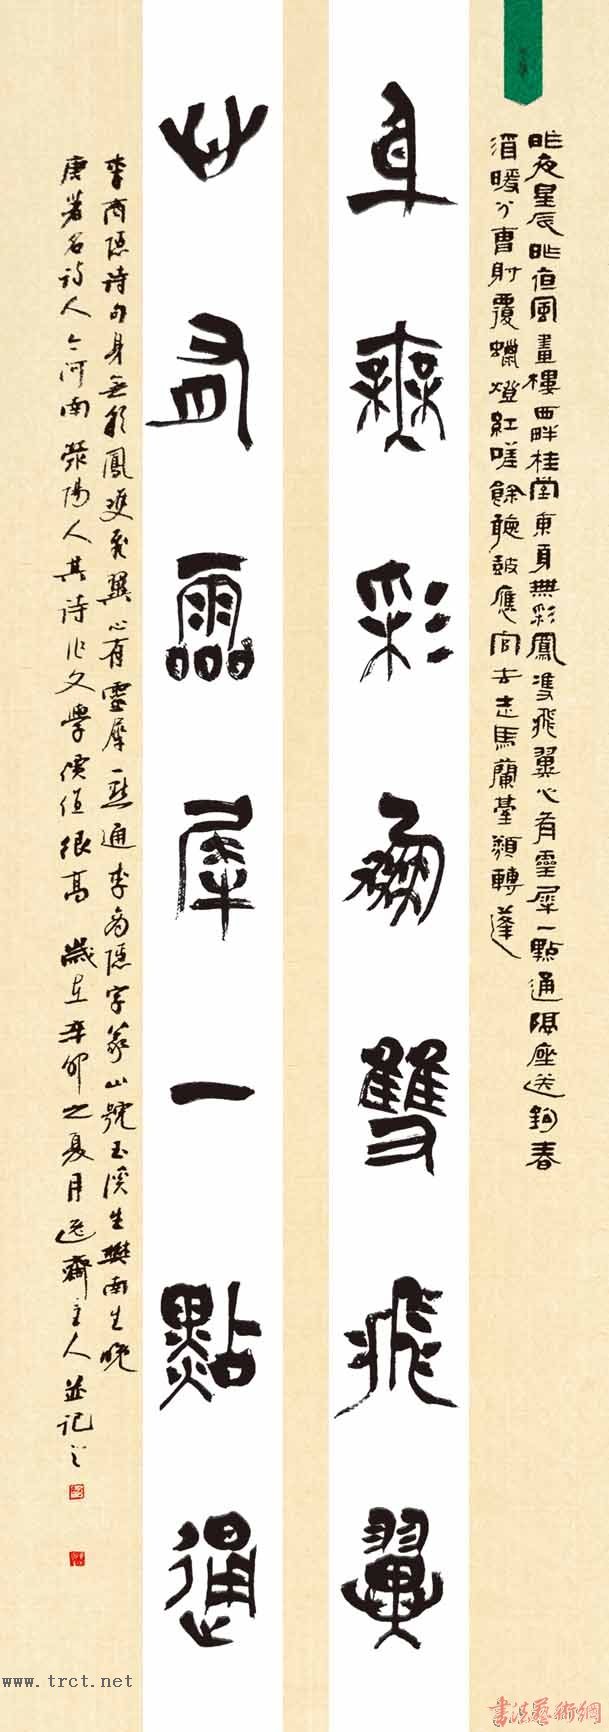 昨夜星辰昨夜風畫樓西畔桂堂東身無彩鳳雙飛翼心有靈犀一點通隔座送鉤春
酒暖分曹射覆蠟燈紅嗟餘聽鼓應官去走馬蘭臺類轉蓬
身無彩鳳雙飛翼
心有靈犀一點通
李商隱詩句身無彩鳳雙飛翼心有靈犀一點通李商隱字義山號玉溪生樊南生晚
唐著名詩人今河南滎陽人其詩作文學價值很高 歲在辛卯之夏月逸齋主人並記之
www.trct.net
書法藝術網